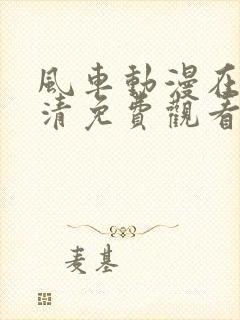 風車動漫在
清免費觀看
麦基